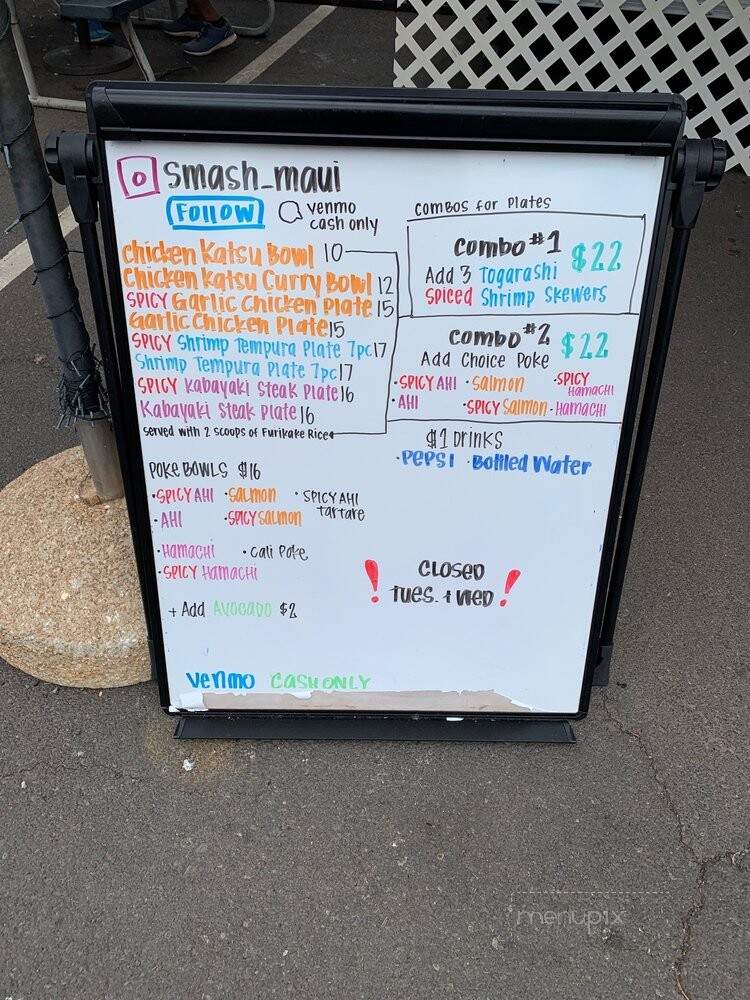 smash_maui
Follow
venmo
cash only
Chicken Katsu Bowl 10
Chicken Katsu Curry Bowl 12
SPICY Garlic Chicken Plate 15
Garlic Chicken Plate 15
SPICY Shrimp Tempura Plate 7pc 17
Shrimp Tempura Plate 7pc 17
SPICY Kabayaki Steak Plate 16
Kabayaki Steak Plate 16
served with 2 scoops of Furikake Rice
combos for Plates
combo #1 $22
Add 3 Togarashi
Spiced Shrimp Skewers
combo #2 $22
Add Choice Poke
·SPICY AHI ·salmon ·SPICY HAMACHI
·AHI ·SPICY Salmon ·HAMACHI
$1 Drinks
·PEPSI ·Bottled Water
POKE BOWLS $16
·SPICY AHI ·salmon ·SPICY AHI tartare
·AHI ·SPICY salmon
·HAMACHI ·Cali Poke
·SPICY HAMACHI
+ Add AVOCADO $2
! CLOSED
TUES. + WED !
venmo CASH ONLY
menupix